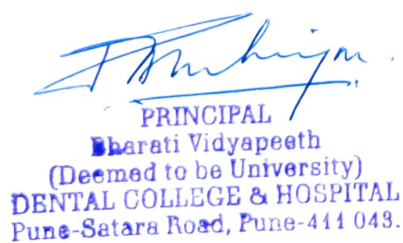 PRINCIPAL
Bharati Vidyapeeth
(Deemed to be University)
DENTAL COLLEGE & HOSPITAL
Pune-Satara Road, Pune-411 043.